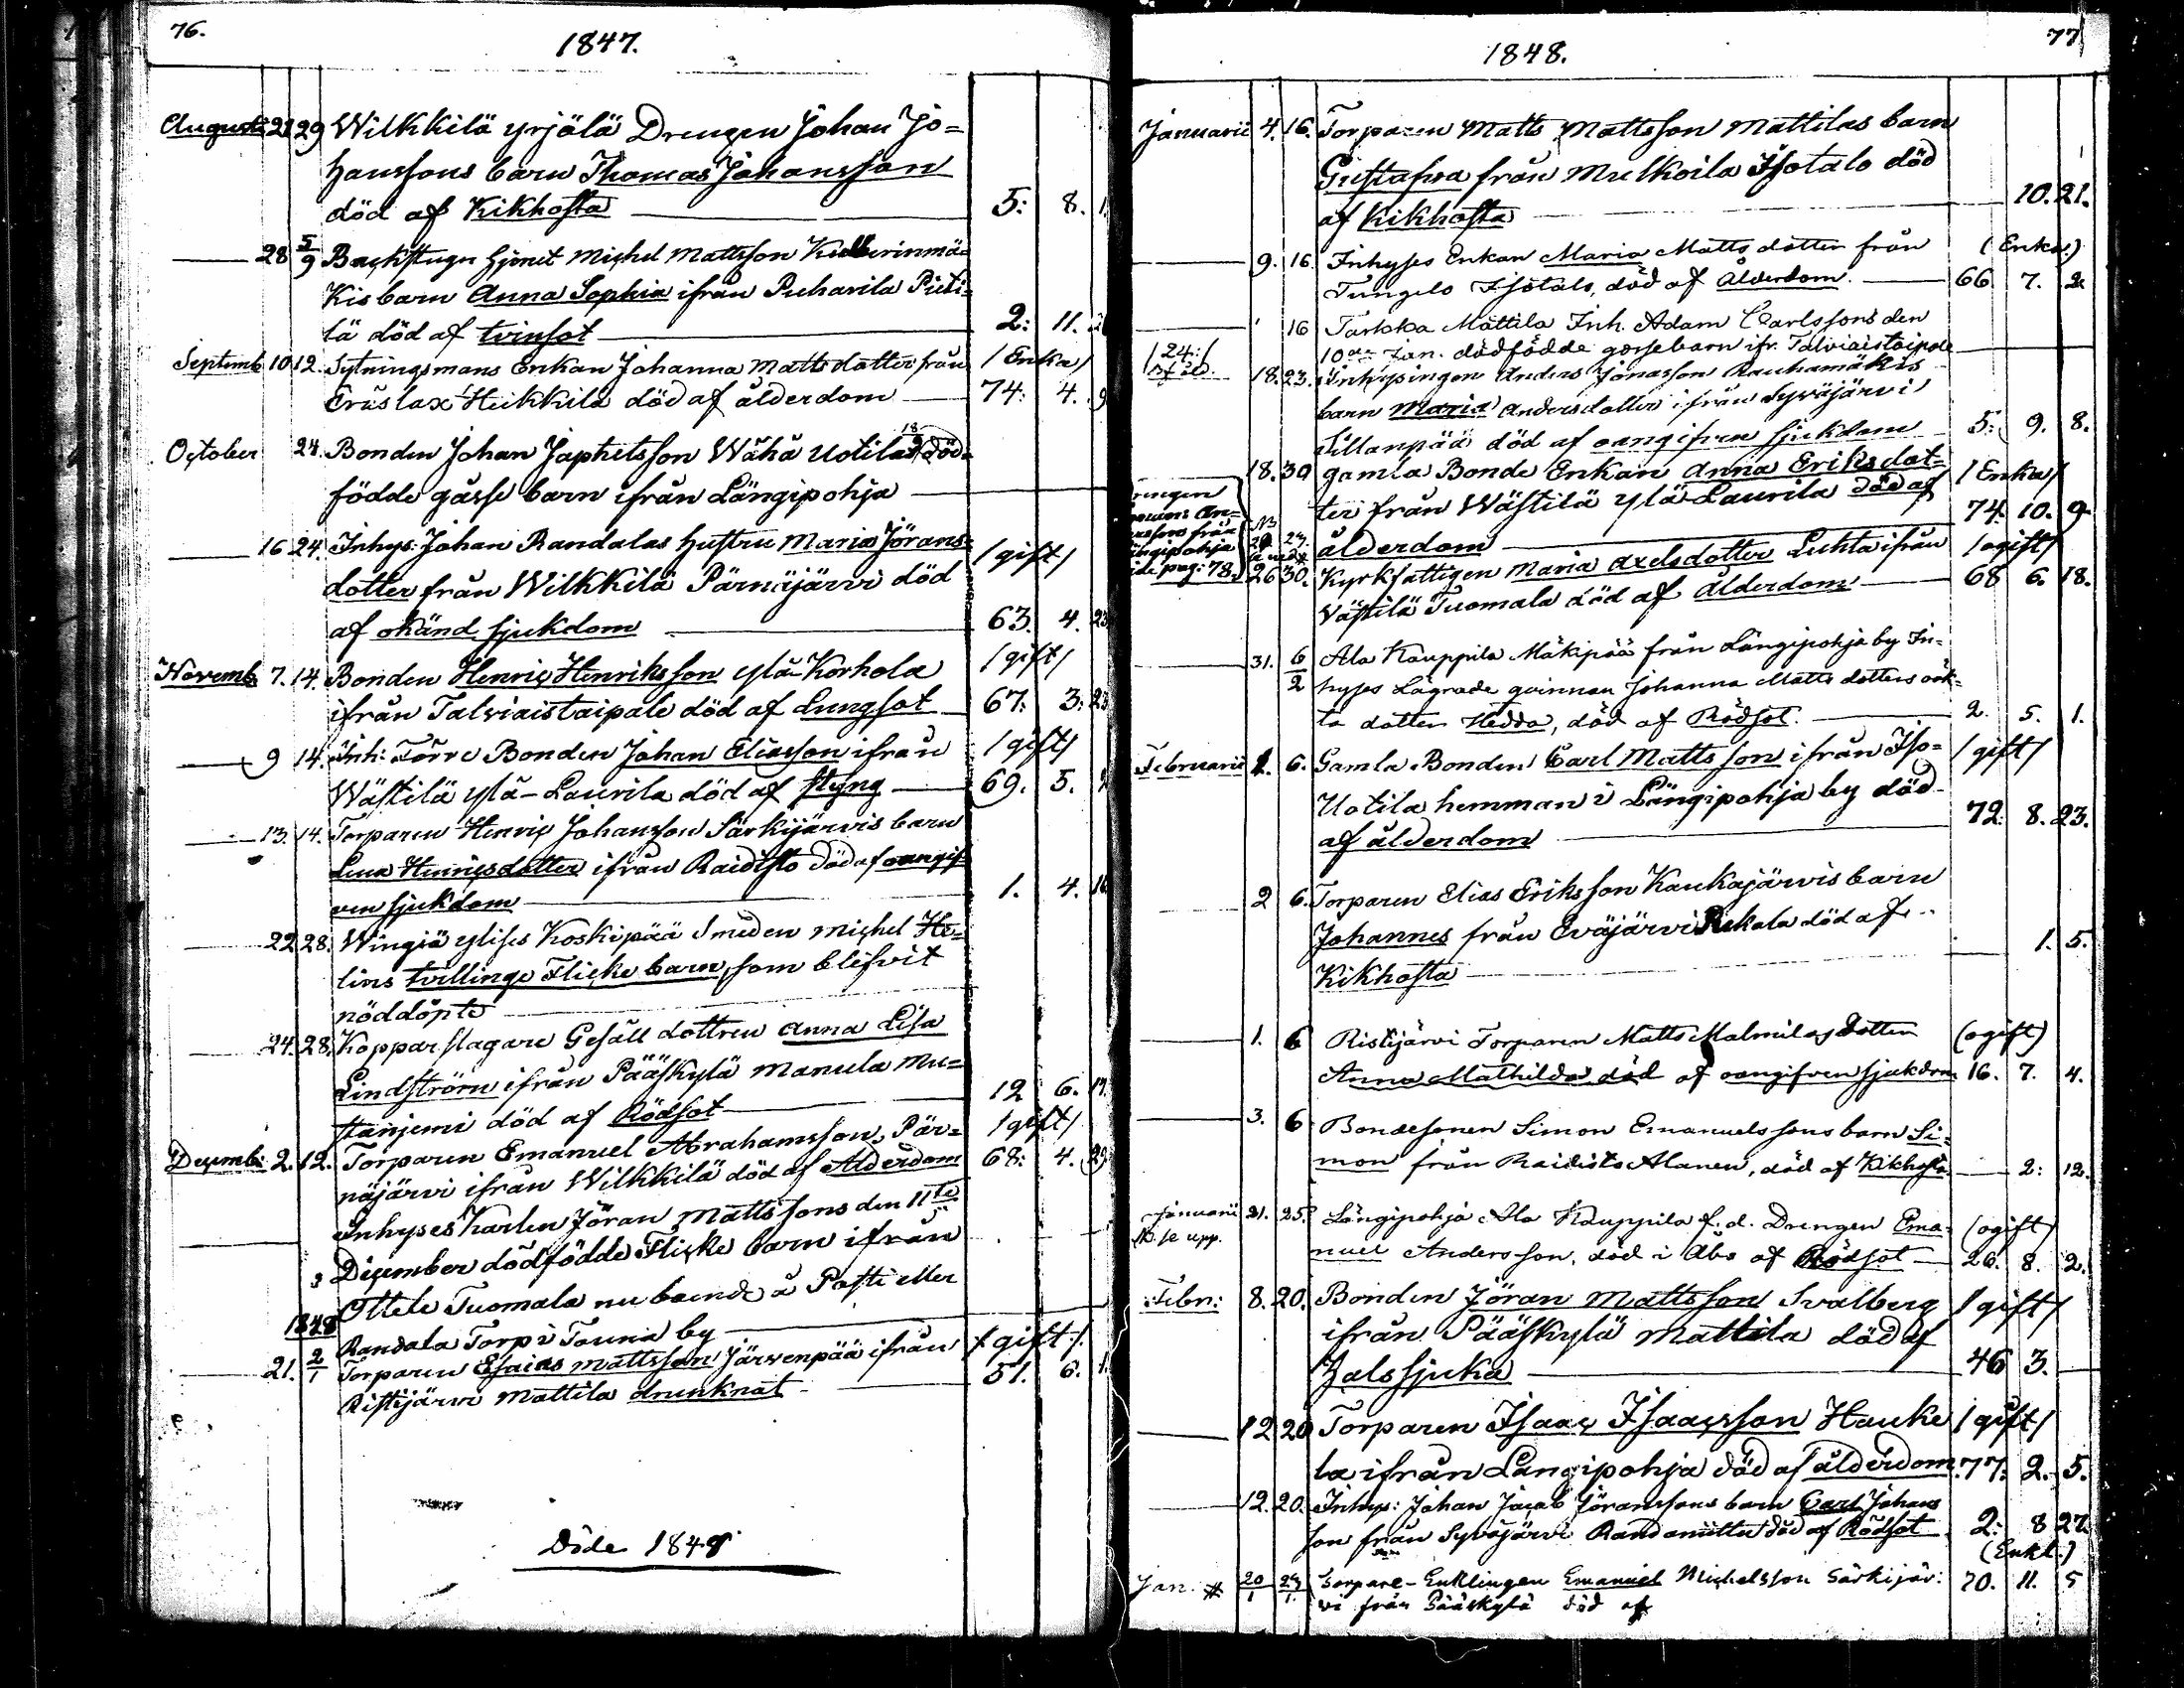 76.
1847.
Augusti 21 29 Wilkkilä Yrjölä Drengen Johan Jo=
hanssons barn Thomas Johansson
död af Kikhosta 5: 8.
28 5/9 Backstugu hjonet Michel Mattsson
kis barn Anna Sophia ifrån Puharila Pieti=
lä död af tvinsot 2: 11.
Septemb. 10 12. Sytningsmans Enkan Johanna Matts dotter från /Enka/
Eräslax Heikkilä död af ålderdom 74: 4. 9
October 24. Bonden Johan Japhetsson Wähä Uotilas död=
födde gåsse barn ifrån Längipohja
16 24. Inhys: Johan Randalas hustru Maria Jörans= /gift/
dotter från Wilkkilä Pärnäjärvi död
af okänd sjukdom 63. 4. 23
Novemb. 7. 14. Bonden Henric Henriksson Ylä-Korhola /gift/
ifrån Talviaistaipale död af Lungsot 67: 3: 23
9 14. Inh: Förre Bonden Johan Eliasson ifrån /gift/
Wästilä Ylä-Laurila död af styng 69. 5.
13. 14. Torparen Henric Johansson Särkijärvis barn
Lena Henricsdotter ifrån Raidisto död af oangif
ven sjukdom 1. 4. 16
22 28. Wingiä Ylises Koskipää Smeden Michel He=
lins tvillinge Flicke barn, som blifvit
nöddöpte
24. 28. Kopparslagare Gesäll dottren Anna Lisa
Lindström ifrån Pääskylä Manula Mu=
staniemi död af Rödsot 12 6. 17.
Decemb: 2. 12. Torparen Emanuel Abrahamsson Pär= /gift/
näjärvi ifrån Wilkkilä död af Ålderdom 68: 4. 29
Inhyses Karlen Jöran Mattssons den 11te
December dödfödde Flicke barn ifrån
Ollele Tuomala nu boende å Pasti eller
1848 Randala Torp i Touna by
21. 2/1 Torparen Esaias Mattsson Järvenpää ifrån /:gift:/
Ristijärvi Mattila drunknat 51. 6.
Döde 1848
1848.
77
Januarii 4. 16. Torparen Matts Mattsson Mattilas barn
Gustafva från Mulkoila Isotalo död
af Kikhosta 10. 21.
9. 16 Inhyses Enkan Maria Matts dotter från (Enka.)
Tungelo Isotalo, död af Ålderdom. 66 7. 2
16 Tarkka Mattila Inh. Adam Carlssons den
10de Jan. dödfödde gossebarn ifr. Talviaistaipale
/24:/
18. 23. Inhysingen Anders Jonasson Rauhamäkis
barn Maria Andersdotter ifrån Syväjärvi
Sillanpää död af oangifven sjukdom 5: 9. 8.
18. 30 gamla Bonde Enkan Anna Eriksdot= /Enka/
ter från Wästilä Ylä-Laurila död af 74. 10. 9
ålderdom
pag: 78.
26 30. Kyrkfattigen Maria Axelsdotter Luhta ifrån /ogift/
Västilä Tuomala död af Ålderdom 68 6. 18.
31. 6/2 Ala Kauppila Mäkipää från Längipohja by In=
hyses Lägrade qvinnan Johanna Matts dotters oäk=
ta dotter Hedda, död af Rödsot. 2. 5. 1.
Februarii 1. 6. Gamla Bonden Carl Mattsson ifrån Iso= /gift/
Uotila hemman i Längipohja by död
af ålderdom 72. 8. 23.
2 6. Torparen Elias Eriksson Kaukajärvis barn
Johannes från Eväjärvi Rekola död af
Kikhosta 1. 5.
1. 6 Ristijärvi Torparen Matts Malmilas dotter (ogift)
Anna Mathilda död af oangifven sjukdom 16. 7. 4.
3. 6 Bondesonen Simon Emanuelssons barn Si=
mon från Raidisto Alanen, död af Kikhosta. 2: 12.
Januarii 21. 25. Längipohja Ala Kauppila f.d. Drengen Ema= (ogift)
nuel Andersson, död i Åbo af Rödsot 26. 8. 2.
se upp.
Febr: 8. 20. Bonden Jöran Mattsson Svalberg /gift/
ifrån Pääskylä Mattila död af
Halssjuka 46 3.
12 20 Torparen Isaac Isaacsson Hauke /gift/
la ifrån Längipohja död af ålderdom 77: 2. 5.
12. 20. Inhys: Johan Jacob Jöranssons barn Carl Johans
son från Syväjärvi Randaniittu död af Rödsot 2: 8 27.
Jan. # 20/1 29/1 Torpare-Enklingen Emanuel Michelsson Särkijär: (Enkl.)
vi från Pääskylä död af 70. 11. 5